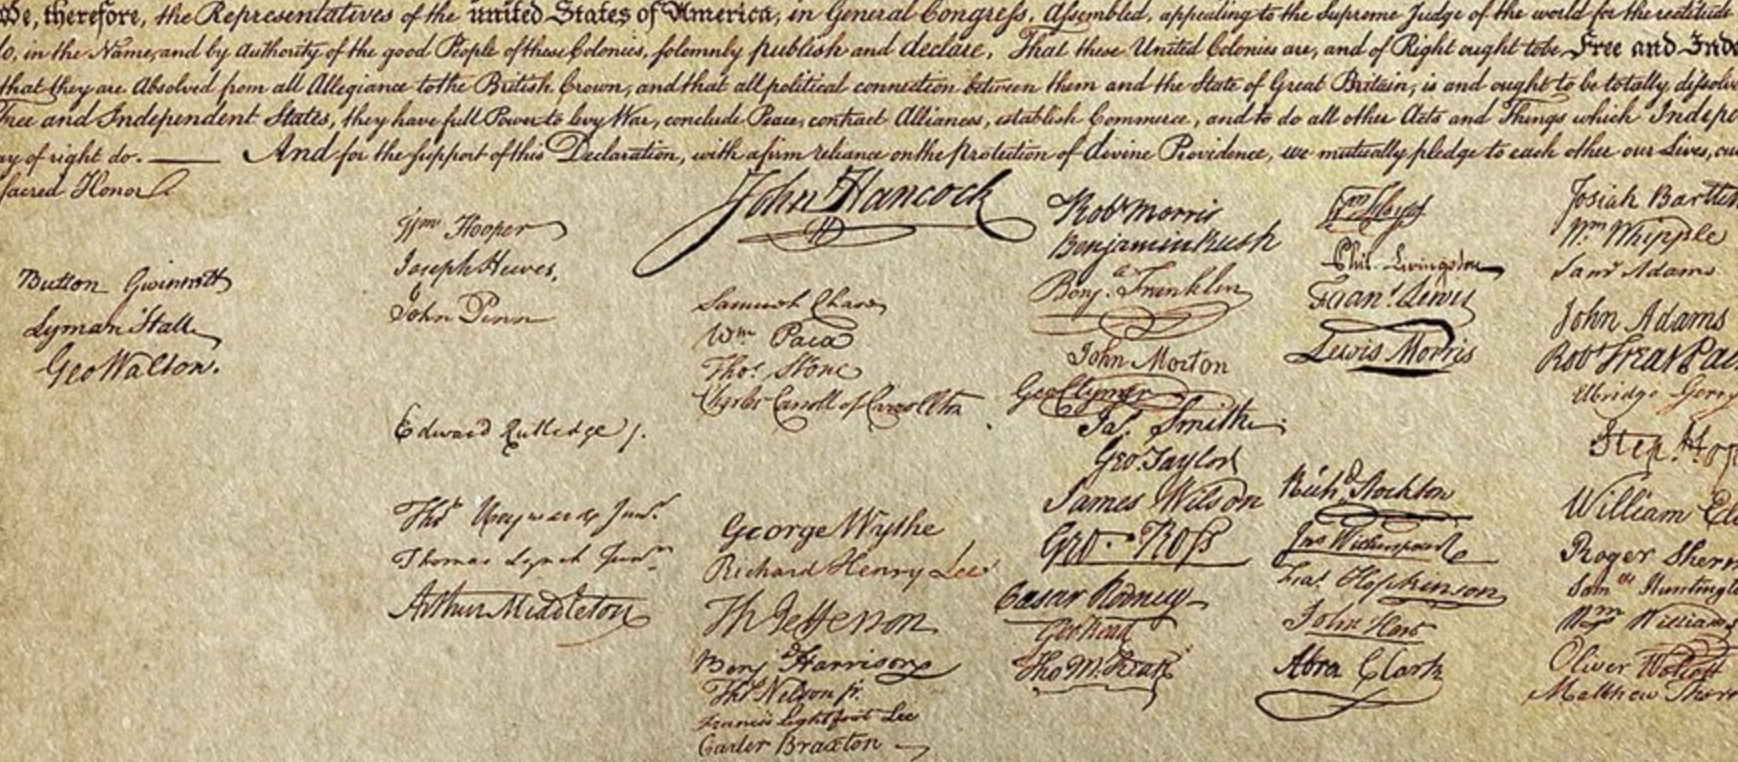 We, therefore, the Representatives of the united States of America, in General Congress, Assembled, appealing to the Supreme Judge of the world for the rectitude
do, in the Name, and by Authority of the good People of these Colonies, solemnly publish and declare, That these United Colonies are, and of Right ought to be Free and Inde
that they are Absolved from all Allegiance to the British Crown, and that all political connection between them and the State of Great Britain, is and ought to be totally dissolv
Free and Independent States, they have full Power to levy War, conclude Peace, contract Alliances, establish Commerce, and to do all other Acts and Things which Indepe
ay of right do. — And for the support of this Declaration, with a firm reliance on the Protection of divine Providence, we mutually pledge to each other our Lives, our
sacred Honor
Button Gwinnett
Lyman Hall
Geo Walton.
Wm Hooper
Joseph Hewes,
John Penn
Edward Rutledge /.
Thos Heyward Junr.
Thomas Lynch Junr.
Arthur Middleton
John Hancock
Samuel Chase
Wm Paca
Thos. Stone
Charles Carroll of Carrollton
George Wythe
Richard Henry Lee
Th Jefferson
Benj Harrison
Thos Nelson jr.
Francis Lightfoot Lee
Carter Braxton
Robt Morris
Benjamin Rush
Benj. Franklin
John Morton
Geo Clymer
Jas. Smith
Geo. Taylor
James Wilson
Geo. Ross
Caesar Rodney
Geo Read
Tho M:Kean
Wm Floyd
Phil. Livingston
Frans. Lewis
Lewis Morris
Richd. Stockton
Jno Witherspoon
Fras. Hopkinson
John Hart
Abra Clark
Josiah Bartlet
Wm Whipple
Saml Adams
John Adams
Robt Treat Pai
Elbridge Gerry
Step. Hop
William Ell
Roger Sherm
Saml Huntingt
Wm Williams
Oliver Wolcott
Matthew Thorn